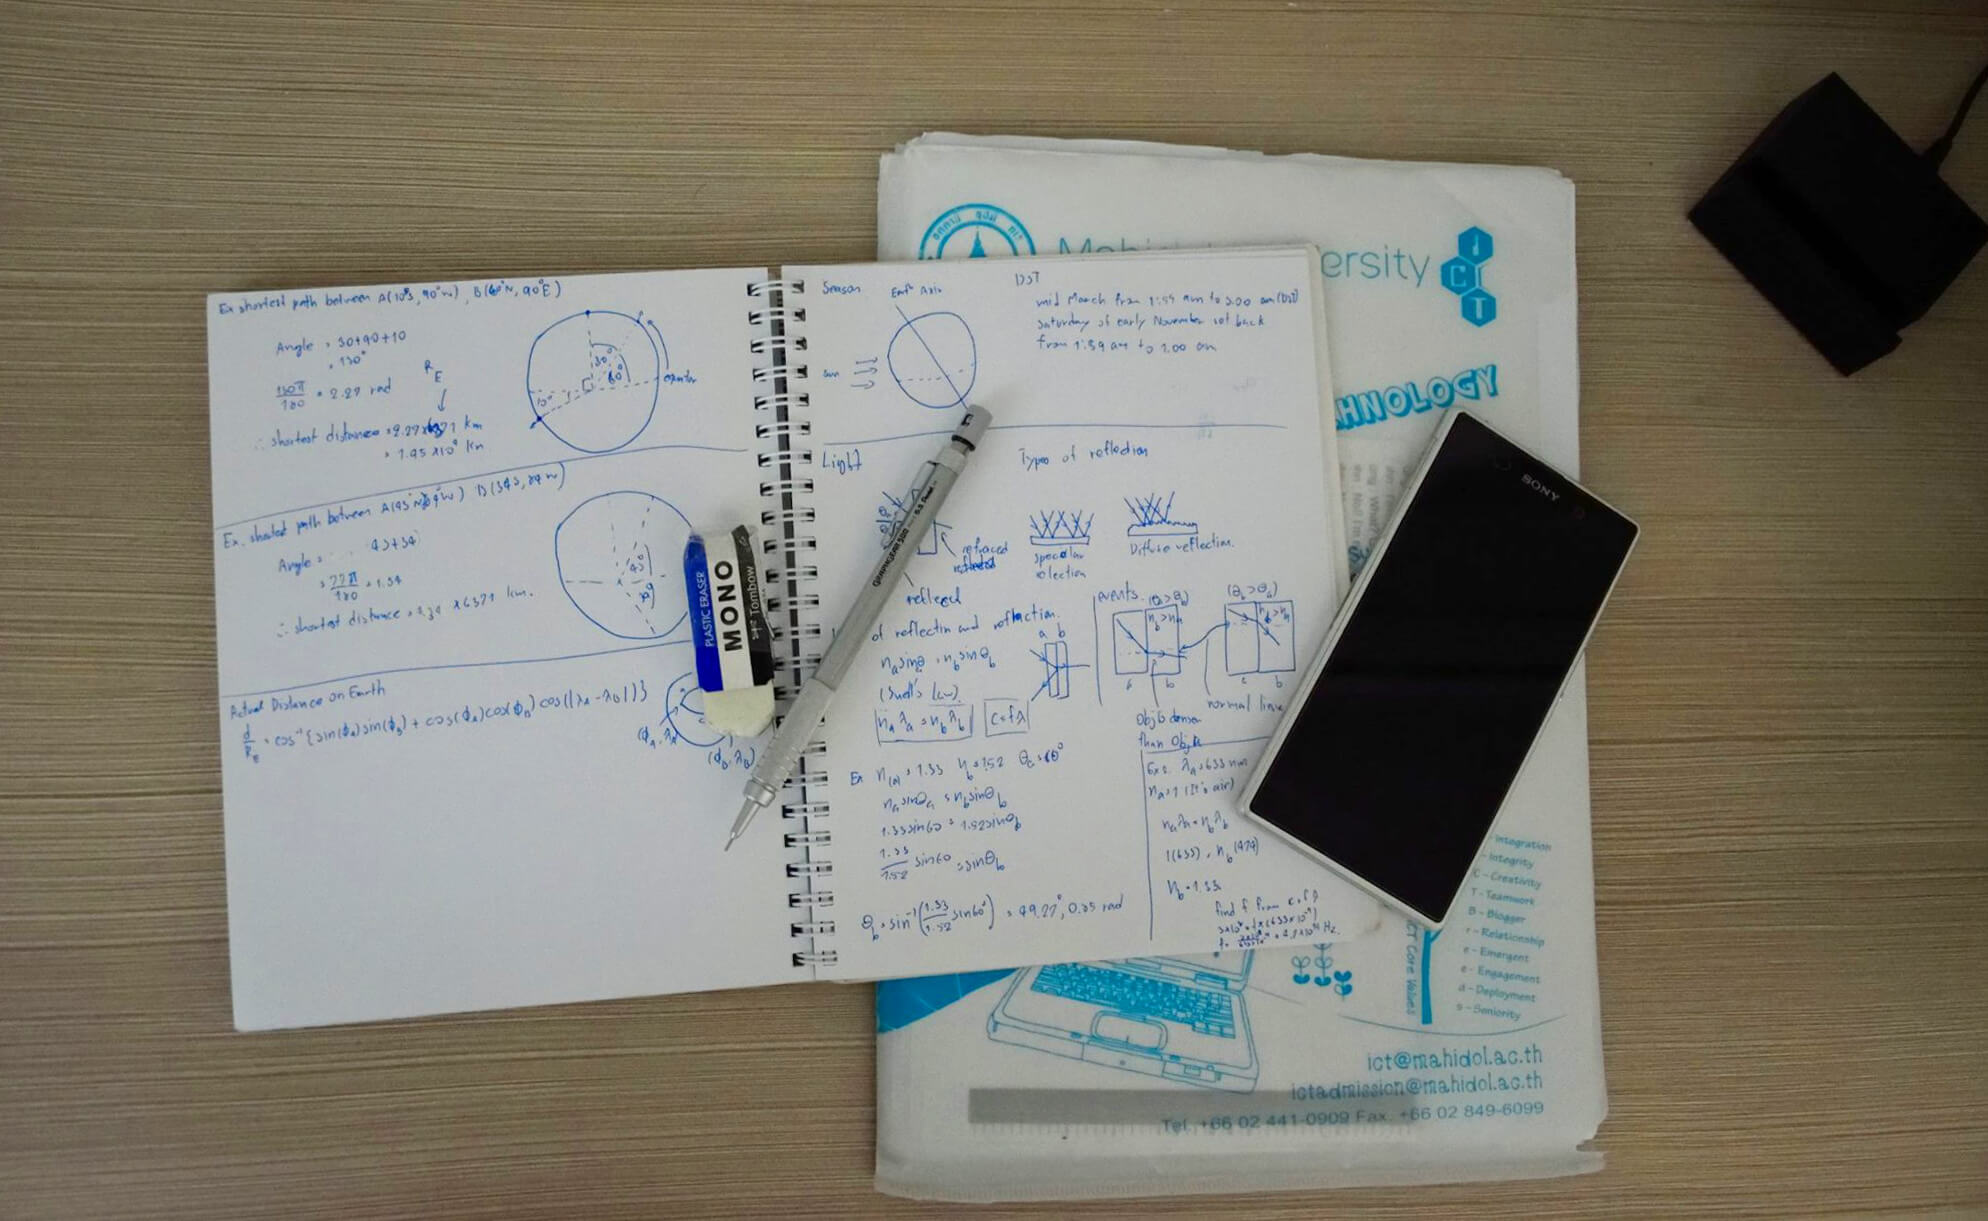 Ex shortest path between A(10°S, 90°W), B(60°N, 90°E)
Angle = 30+90+10
= 130°
130π/180 = 2.27 rad
R_E
∴ shortest distance = 2.27x6371 km
= 1.45 x10⁴ km
30°
60°
10°
equator
Ex. shortest path between
Angle = 43+34
= 77π/180 = 1.34
∴ shortest distance = 1.34 x 6371 km.
43°
Actual Distance on Earth
d/R_E = cos⁻¹{sin(ϕ_A)sin(ϕ_B) + cos(ϕ_A)cos(ϕ_B)cos(|λ_A - λ_B|)}
(ϕ_A, λ_A)
(ϕ_B, λ_B)
PLASTIC ERASER
MONO
Tombow
Season
Axis
sun
DST
mid March from 1:59 am to 3.00 am (DST)
Saturday of early November set back
from 1:59 am to 1.00 am
Light
Types of reflection
refraced
reflecd
specular
Diffuse reflection.
of reflectin and refraction.
a b
n_a sinθ_a = n_b sinθ_b
(Snell's Law)
n_a λ_a = n_b λ_b
c = fλ
events.
(θ_b > θ_a)
a b
normal line
Obj b denser
than Obj a
Ex n_(a) = 1.33 n_b = 1.52 θ_a = 60°
n_a sinθ_a = n_b sinθ_b
1.33sin60 = 1.52sinθ_b
1.33/1.52 sin60 = sinθ_b
θ_b = sin⁻¹(1.33/1.52 sin60°) = 49.27°, 0.85 rad
Ex 2. λ_a = 633 nm
n_a = 1 (It's air)
n_a λ_a = n_b λ_b
1(633) = n_b (474)
n_b = 1.33
find f from c = fλ
GRAPHGEAR 500
Pentel
0.5
ersity
ICT
HNOLOGY
SONY
- Integration
- Integrity
C - Creativity
T - Teamwork
B - Blogger
r - Relationship
e - Emergent
e - Engagement
d - Deployment
s - Seniority
ICT Core Values
ict@mahidol.ac.th
ictadmission@mahidol.ac.th
Tel. +66 02 441-0909 Fax. +66 02 849-6099